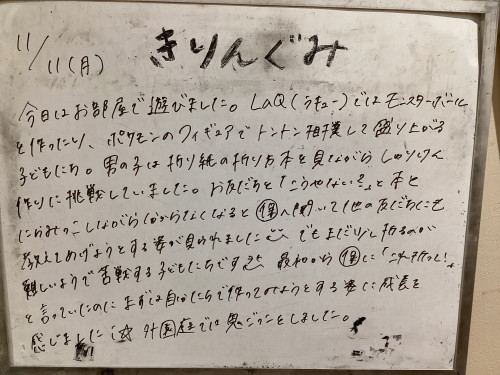 11/11(月)
きりんぐみ
今日はお部屋で遊びました。LaQ(ラキュー)ではモンスターボール
を作ったり、ポケモンのフィギュアでトントン相撲して盛り上がる
子どもたち。男の子は折り紙の折り方本を見ながらしゅりけん
作りに挑戦していました。お友だちと「こうやない?」と本と
にらめっこしながら分からなくなると保へ聞いて他の友だちにも
教えてあげようとする姿が見られました でもまだ少し折るのが
難しいようで苦戦する子どもたちです 最初から保に「これ折って!」
と言っていたのにまずは自分たちで作ってみようとする姿に成長を
感じました☆ 外園庭では鬼ごっこをしました。